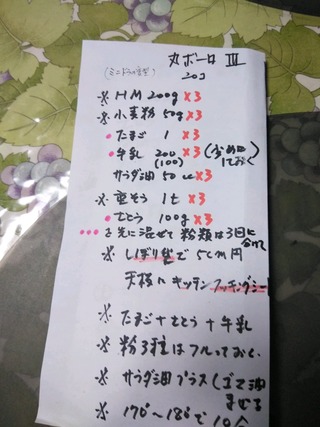 丸ボーロ III
(ミニどら焼き型)
20コ
※ HM 200g ×3
※ 小麦粉 50g ×3
• たまご 1 ×3
• 牛乳 200 ×3 (少なめに
(100) しておく)
サラダ油 50cc ×3
※ 重そう 1t ×3
• さとう 100g ×3
••• を先に混ぜて 粉類は3回に
分けて
※ しぼり袋で 5cm円
天板に キッチンクッキングシート
※ たまご+さとう+牛乳
※ 粉3種はフルっておく
※ サラダ油プラス(ゴマ油
まぜる
※ 170°~180°で 10分